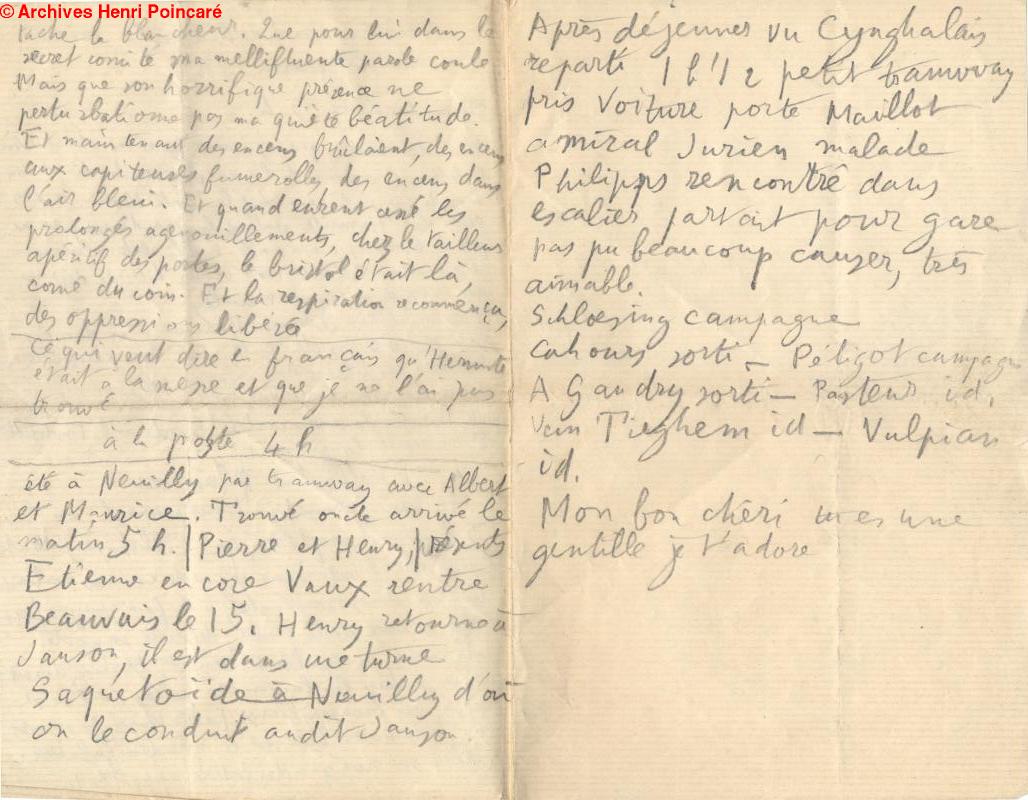 © Archives Henri Poincaré
tache la blancheur. Que pour lui dans le
secret comité ma mellifluente parole coule
Mais que son horrifique présence ne
perturbationne pas ma quiète béatitude.
Et maintenant des encens brûlaient, des encens
aux capiteuses fumerolles, des encens dans
l'air bleui. Et quand eurent cessé les
prolongés agenouillements, chez le tailleur
apéritif des portes, le bristol était là,
corné du coin. Et la respiration recommença,
des oppressions libérée
Ce qui veut dire en français qu'Hermite
était à la messe et que je ne l'ai pas
trouvé
à la poste 4 h
été à Neuilly par tramway avec Albert
et Maurice. Trouvé oncle arrivé le
matin 5 h. Pierre et Henry, présents
Etienne encore Vaux rentre
Beauvais le 15. Henry retourne à
Janson, il est dans une turne
Saquetoïde à Neuilly d'où
on le conduit audit Janson.
Après déjeuner vu Cynghalais
reparti 1 h 1/2 petit tramway
pris voiture porte Maillot
amiral Jurien malade
Philipps rencontré dans
escalier partait pour gare
pas pu beaucoup causer, très
aimable.
Schloesing campagne
Cahours sorti – Péligot campagne
A Gaudry sorti – Pasteur id.
Van Tieghem id – Vulpian
id.
Mon bon chéri tu es une
gentille je t'adore